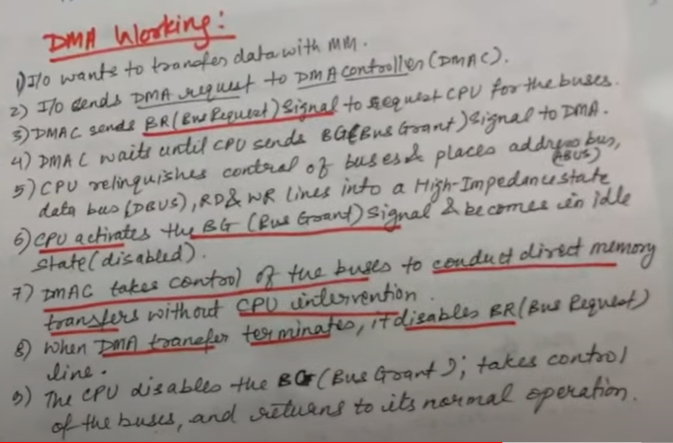 DMA Working:
1) I/O wants to transfer data with MM.
2) I/O sends DMA request to DMA controller (DMAC).
3) DMAC sends BR (Bus Request) Signal to request CPU for the buses.
4) DMAC waits until CPU sends BG (Bus Grant) Signal to DMA.
5) CPU relinquishes control of buses & places address bus,
(ABUS)
data bus (DBUS), RD & WR lines into a High-Impedance state
6) CPU activates the BG (Bus Grant) Signal & becomes in idle
state (disabled).
7) DMAC takes control of the buses to conduct direct memory
transfers without CPU intervention.
8) When DMA transfer terminates, it disables BR (Bus Request)
line.
9) The CPU disables the BG (Bus Grant); takes control
of the buses, and returns to its normal operation.